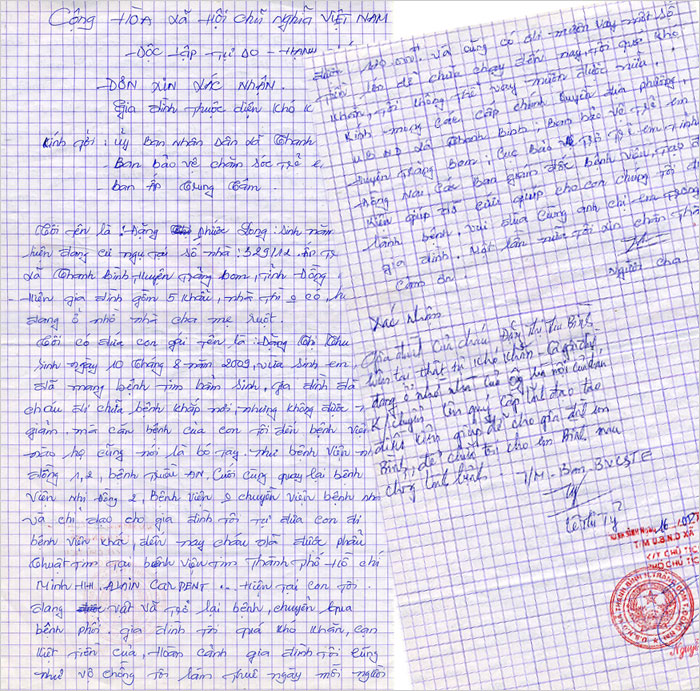 Cộng Hòa Xã Hội Chủ Nghĩa VIỆT NAM
Độc Lập Tự Do - Hạnh
ĐƠN XIN XÁC NHẬN.
Gia đình thuộc diện khó k
Kính gởi: Ủy Ban Nhân Dân Xã Thanh
- Ban bảo vệ chăm sóc trẻ e
- Ban Ấp Trung Tâm.
Tôi tên là: Đặng Phước Long: sinh năm
hiện đang cư ngụ tại số nhà: 329/12. Ấp T
xã Thanh Bình, Huyện Trảng Bom, Tỉnh Đồng
Hiện gia đình gồm 5 khẩu, nhà thì o có,
đang ở nhờ nhà cha mẹ ruột.
Tôi có đứa con gái tên là: Đặng Thị Thu
sinh ngày 10 tháng 8 năm 2009, vừa sinh em,
đã mang bệnh tim bẩm sinh, gia đình đã
cháu đi chữa bệnh khắp nơi, nhưng không được
giảm. mà căn bệnh của con tôi đến bệnh viện
nào họ cũng nói là bó tay. như bệnh viện
đồng 1, 2, bệnh ĐN. Cuối cùng quay lại bệnh
Viện Nhi Đồng 2. Bệnh Viện 2 chuyển viện bệnh nh
và chỉ đạo cho gia đình tôi tự đưa con đi
bệnh viện khác, đến nay cháu đã được phẩu
thuật tim tại bệnh viện tim thành phố Hồ Chí
Minh HH. ALAIN CARPENT. Hiện tại con tôi
đang vật vã trở lại bệnh, chuyển qua
bệnh phổi. gia đình tôi quá khó khăn, cạn
kiệt tiền của, Hoàn cảnh gia đình tôi cũng
như vợ chồng tôi làm thuê ngày mỗi người
và cũng có đi mượn vay một số
tiền lớn để chữa chạy đến nay, tôi quá khó
khăn, tôi không thể vay mượn được nữa.
Kính mong các cấp chính quyền địa phương,
UBND xã Thanh Bình; Ban bảo vệ trẻ em
Huyện Trảng Bom; Cục Bảo vệ trẻ em tỉnh
Đồng Nai các Ban giám đốc bệnh viện, tạo đ
kiện giúp đỡ cứu giúp cho con chúng tôi đ
lành bệnh. vui đùa cùng anh chị em trong
gia đình. Một lần nữa tôi xin chân th
Cảm ơn.
Người Cha
Xác Nhận
Gia đình của cháu Đặng thị thu Bình
hiện tại thật sự khó khăn
đang ở nhờ nhà của ông bà nội của cháu
K/chuyển lên quý cấp lãnh đạo tạo
điều kiện giúp đỡ cho gia đình em
Bình, để chữa trị cho em Bình mau
chóng lành bệnh. T/M. Ban. BVCSTE
Lê thị Tỷ
T/M U.B.N.D XÃ
K/T CHỦ TỊC
PHÓ CHỦ TỊC
Nguyễ